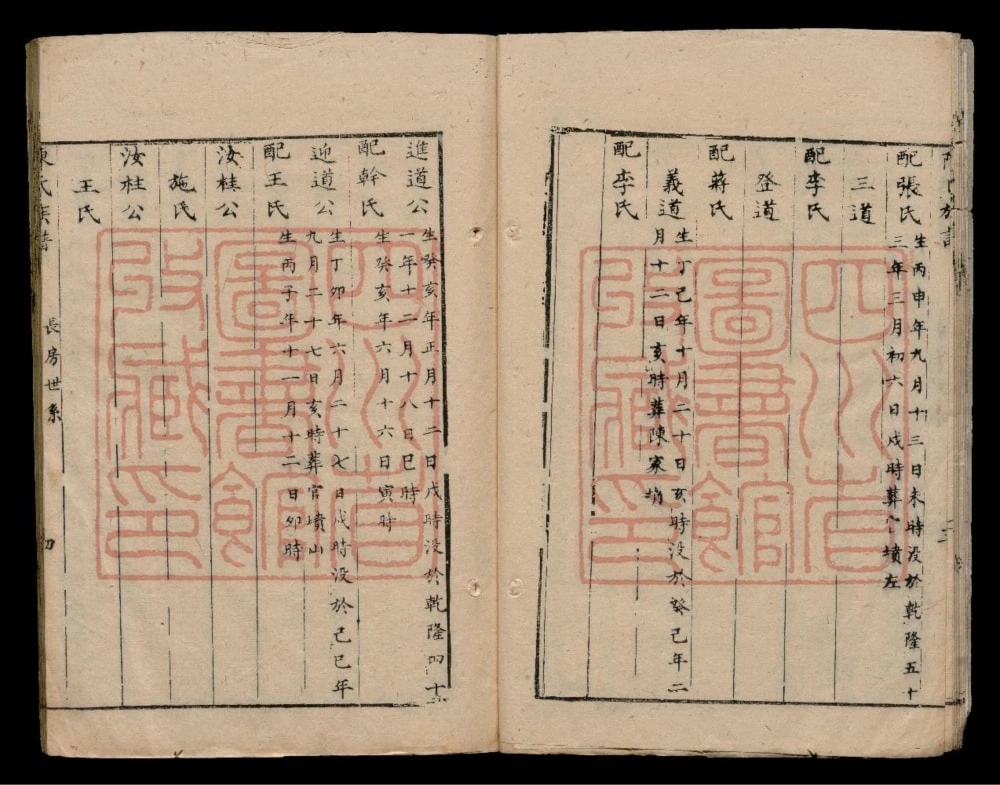 配張氏
生丙申年九月十三日未時没於乾隆五十
三年三月初六日戌時葬官墳左
三道
配李氏
登道
配蔣氏
義道
生丁己年十月二十日亥時没於癸己年二
月十二日亥時葬陳家墳
配李氏
進道公
生癸亥年正月十二日戊時没於乾隆四十
一年十二月十八日巳時
配幹氏
生癸亥年六月十六日寅時
迎道公
生丁卯年六月二十七日戌時没於己巳年
九月二十七日亥時葬官墳山
配王氏
生丙子年十一月十二日卯時
汝桂公
施氏
汝柱公
王氏
陳氏族譜
長房世系
四川省
圖書館
收藏印
四川省
圖書館
收藏印